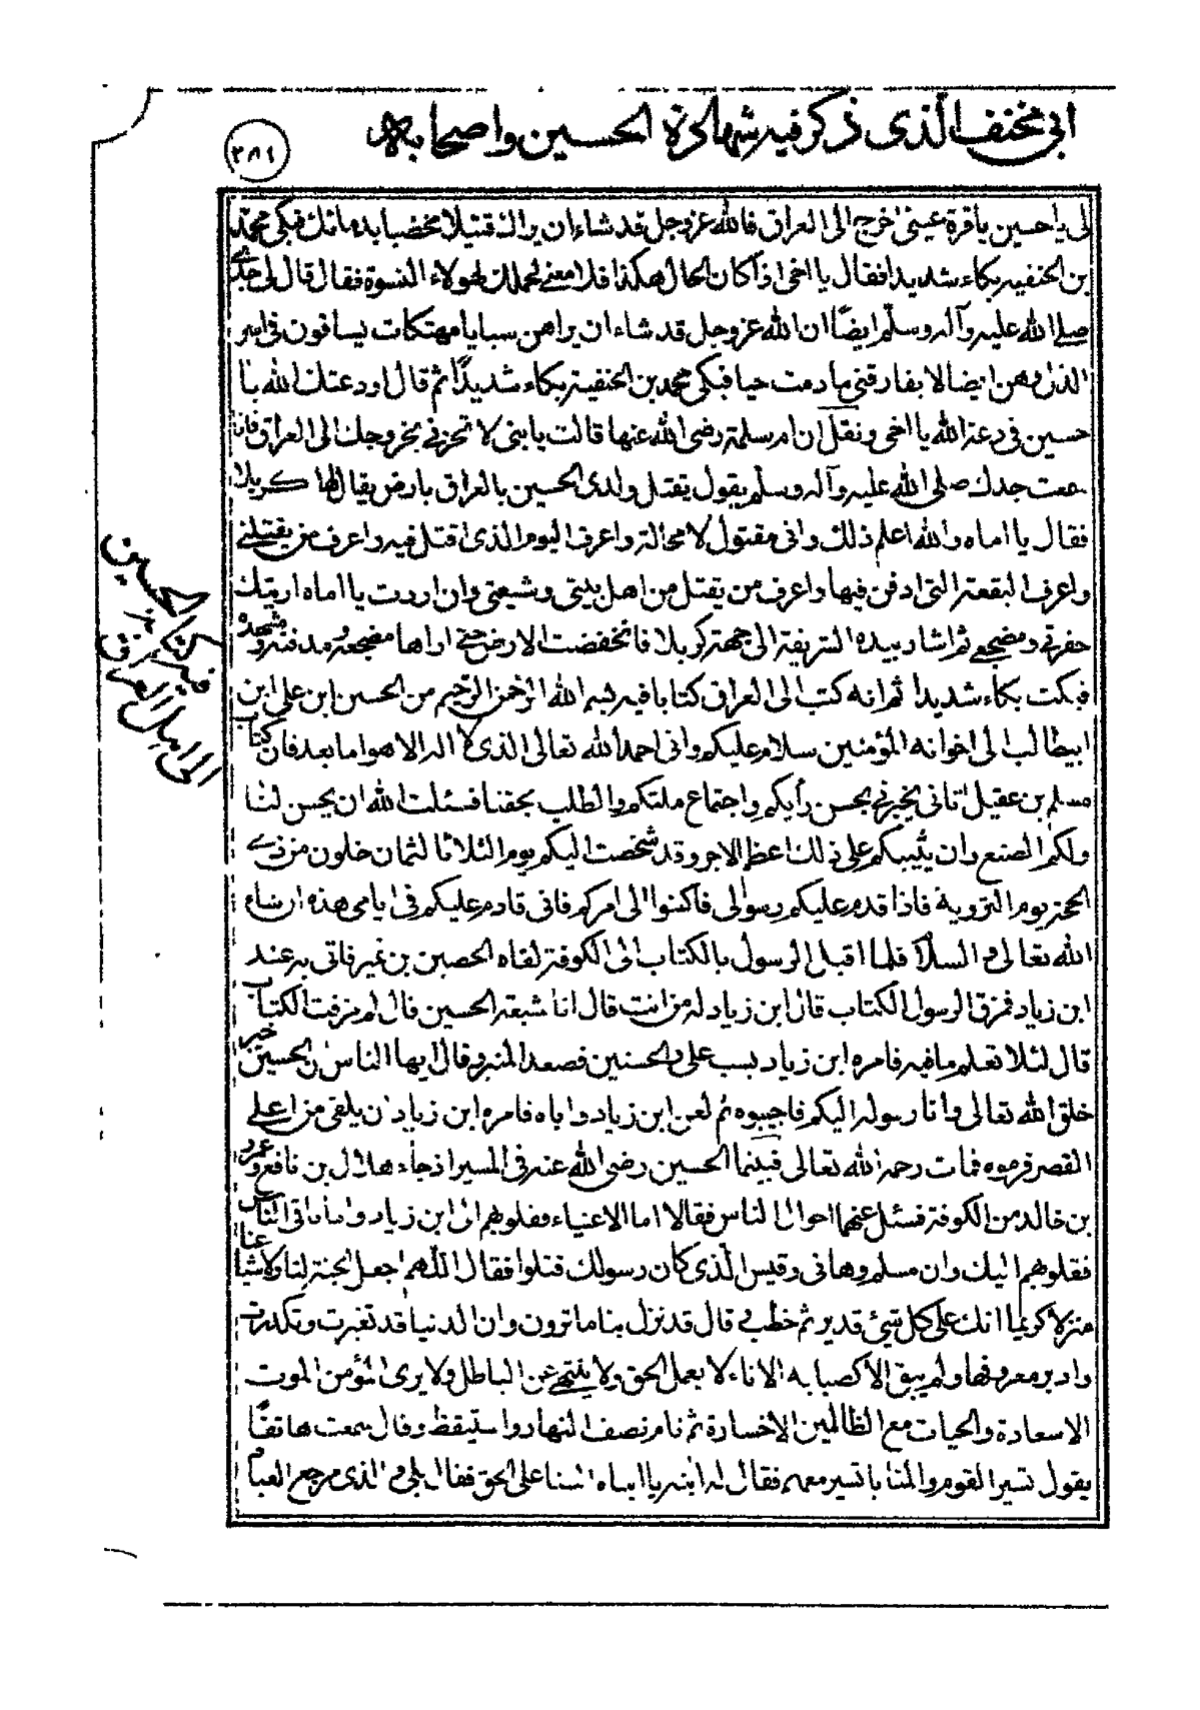 ابی مخنف الّذی ذکر فیه شهادة الحسین واصحابه
٣٨٤
لی یاحسین یاقرة عینی اخرج الی العراق فالله عزوجل قد شاء ان یراك قتیلا مخضبا بدمائك فبکی محمد
بن الحنفیه بکاء شدیدا فقال یا اخی اذا کان الحال هکذا فلا معنی لحملك لهولاء النسوة فقال قال لی جدی
صلی الله علیه وآله وسلّم ایضًا ان الله عزوجل قد شاء ان یراهن سبایا مهتکات یساقون فی اسر
الذل وهن ایضا لا یفارقنی مادمت حیا فبکی محمد بن الحنفیة بکاء شدیدًا ثم قال اودعتك الله یا
حسین فی دعة الله یا اخی ونقل ان ام سلمة رضی الله عنها قالت یا بنی لا تحزنی بخروجك الی العراق فانی
سمعت جدك صلی الله علیه وآله وسلّم یقول یقتل ولدی الحسین بالعراق بارض یقال لها کربلا
فقال یا اماه والله اعلم ذلك وانی مقتول لا محالة واعرف الیوم الذی اقتل فیه واعرف من یقتلنی
واعرف البقعة التی ادفن فیها واعرف من یقتل من اهل بیتی وشیعتی وان اردت یا اماه اریتك
حفرتی ومضجعی ثم اشار بیده الشریفة الی جهة کربلا فانخفضت الارض حتی اراها مضجعه ومدفنه ومشهده
فبکت بکاء شدیدا ثم انه کتب الی العراق کتابا فیه بسم الله الرحمن الرحیم من الحسین ابن علی ابن
ابیطالب الی اخوانه المؤمنین سلام علیکم وانی احمد الله تعالی الذی لا اله الا هو اما بعد فان کتاب
مسلم بن عقیل اتانی یخبرنی بحسن رأیکم واجتماع ملتکم والطلب بحقنا فسئلت الله ان یحسن لنا
ولکم الصنع وان یثیبکم علی ذلك اعظم الاجر وقد شخصت الیکم یوم الثلاثا لثمان خلون من ذی
الحجة یوم الترویة فاذا قدم علیکم رسولی فاکنوا الی امرکم فانی قادم علیکم فی ایامی هذه ان شاء
الله تعالی والسلام فلما اقبل الرسول بالکتاب الی الکوفة لقاه الحصین بن نمیر فاتی به عند
ابن زیاد فمزق الرسول الکتاب قال ابن زیاد له من انت قال انا شیعة الحسین قال لم مزقت الکتاب
قال لئلا تعلم ما فیه فامره ابن زیاد بسب علی والحسنین فصعد المنبر وقال ایها الناس ان الحسین خیر
خلق الله تعالی وانا رسوله الیکم فاجیبوه ثم لعن ابن زیاد واباه فامره ابن زیاد ان یلقی من اعلی
القصر فرموه فمات رحمه الله تعالی فبینما الحسین رضی الله عنه فی المسیر اذ جاء هلال بن نافع وعمرو
بن خالد من الکوفة فسئل عنهما احوال الناس فقالا اما الاغنیاء فقلوبهم الی ابن زیاد واما باقی الناس
فقلوبهم الیك وان مسلم وهانی وقیس الّذی کان رسولك قتلوا فقال اللهم اجعل الجنة لنا ولاشیاعنا
منزلا کریما انك علی کل شیٔ قدیر ثم خطب قال قد نزل بنا ما ترون وان الدنیا قد تغیرت وتکدرت
وادبر معروفها ولم یبق الا کصبابه الاناء لا یعمل الحق ولا ینتهی عن الباطل ولا یری المؤمن الموت
الا سعادة والحیات مع الظالمین الا خسارة ثم نام نصف النهار واستیقظ وقال سمعت هاتفًا
یقول تسیر القوم والمنایا تسیر معهم فقال له ابنه یا ابیاه السنا علی الحق فقال بلی والذی مرجع العباد
فیه کتاب الحسین
الی اهل العراق